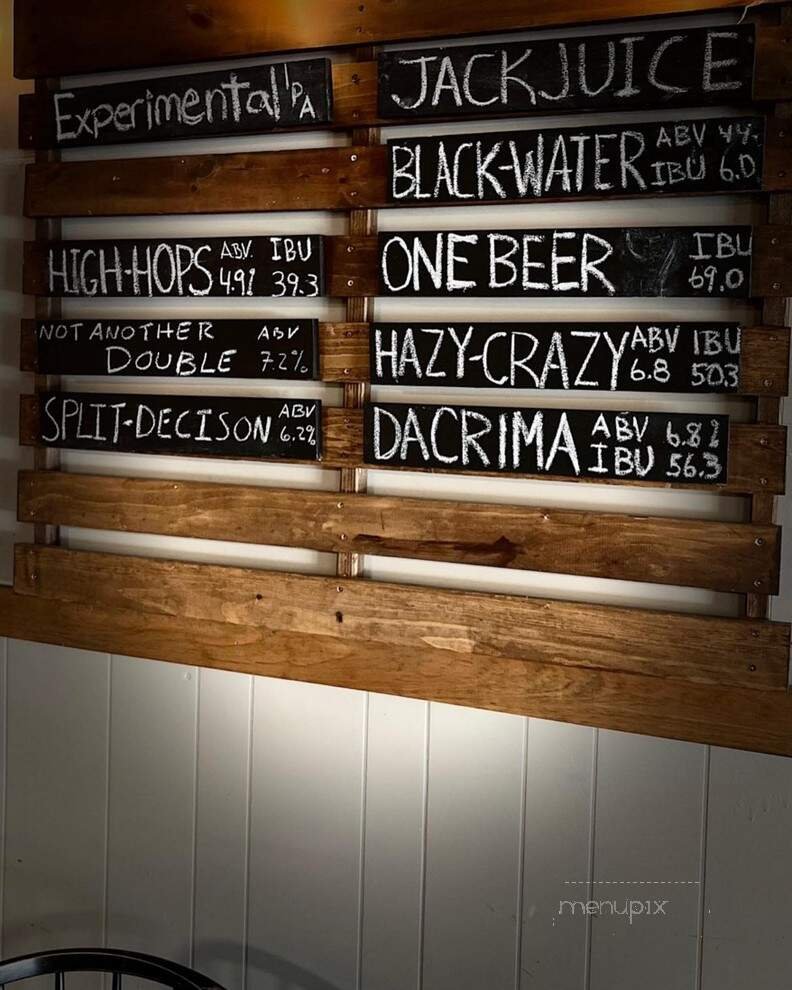 Experimental IPA
HIGH-HOPS ABV. IBU
4.91 39.3
NOT ANOTHER ABV
DOUBLE 7.2%
SPLIT-DECISON ABV
6.2%
JACKJUICE
BLACK-WATER ABV 44.
IBU 6.0
ONE BEER IBU
69.0
HAZY-CRAZY ABV IBU
6.8 50.3
DACRIMA ABV 6.8%
IBU 56.3
menupix